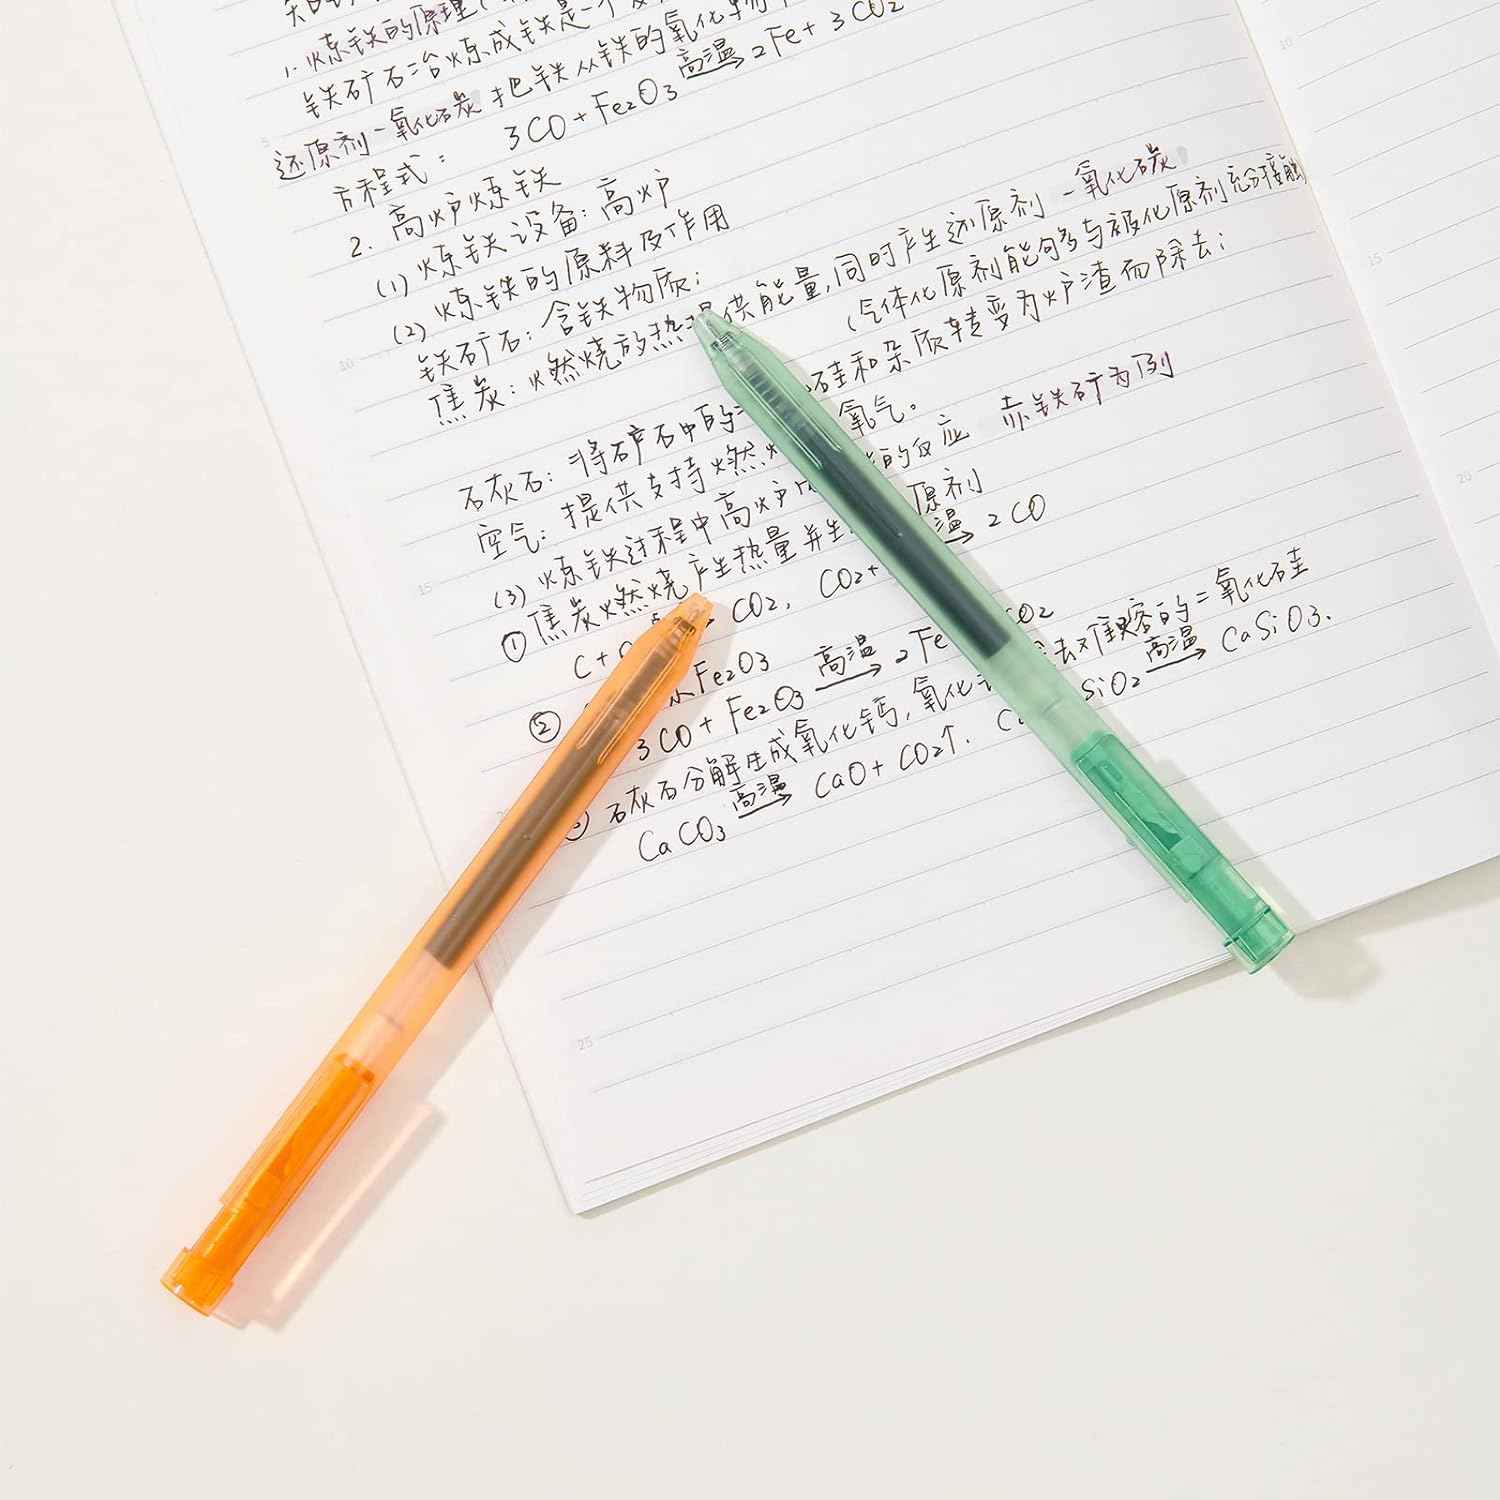 1. 炼铁的原理(
铁矿石冶炼成铁是一个
还原剂一氧化碳把铁从铁的氧化物
方程式: 3CO+Fe2O3 高温→ 2Fe+3CO2
2. 高炉炼铁
(1) 炼铁设备:高炉
(2) 炼铁的原料及作用
铁矿石:含铁物质;
焦炭:燃烧放热提供能量,同时产生还原剂一氧化碳
(气体化原剂能够与被化原剂充分接触
石灰石:将矿石中的 硅和杂质转变为炉渣而除去;
空气:提供支持燃 氧气。
(3) 炼铁过程中高炉内 的反应 赤铁矿为例
① 焦炭燃烧产生热量并生 原剂
C+ CO2, CO2+ 温→ 2CO
② Fe2O3
3CO+Fe2O3 高温→ 2Fe CO2
石灰石分解生成氧化钙,氧化 去难熔的二氧化硅
CaCO3 高温→ CaO+CO2↑. Ca SiO2 高温→ CaSiO3.
5
10
15
25
10
15
20